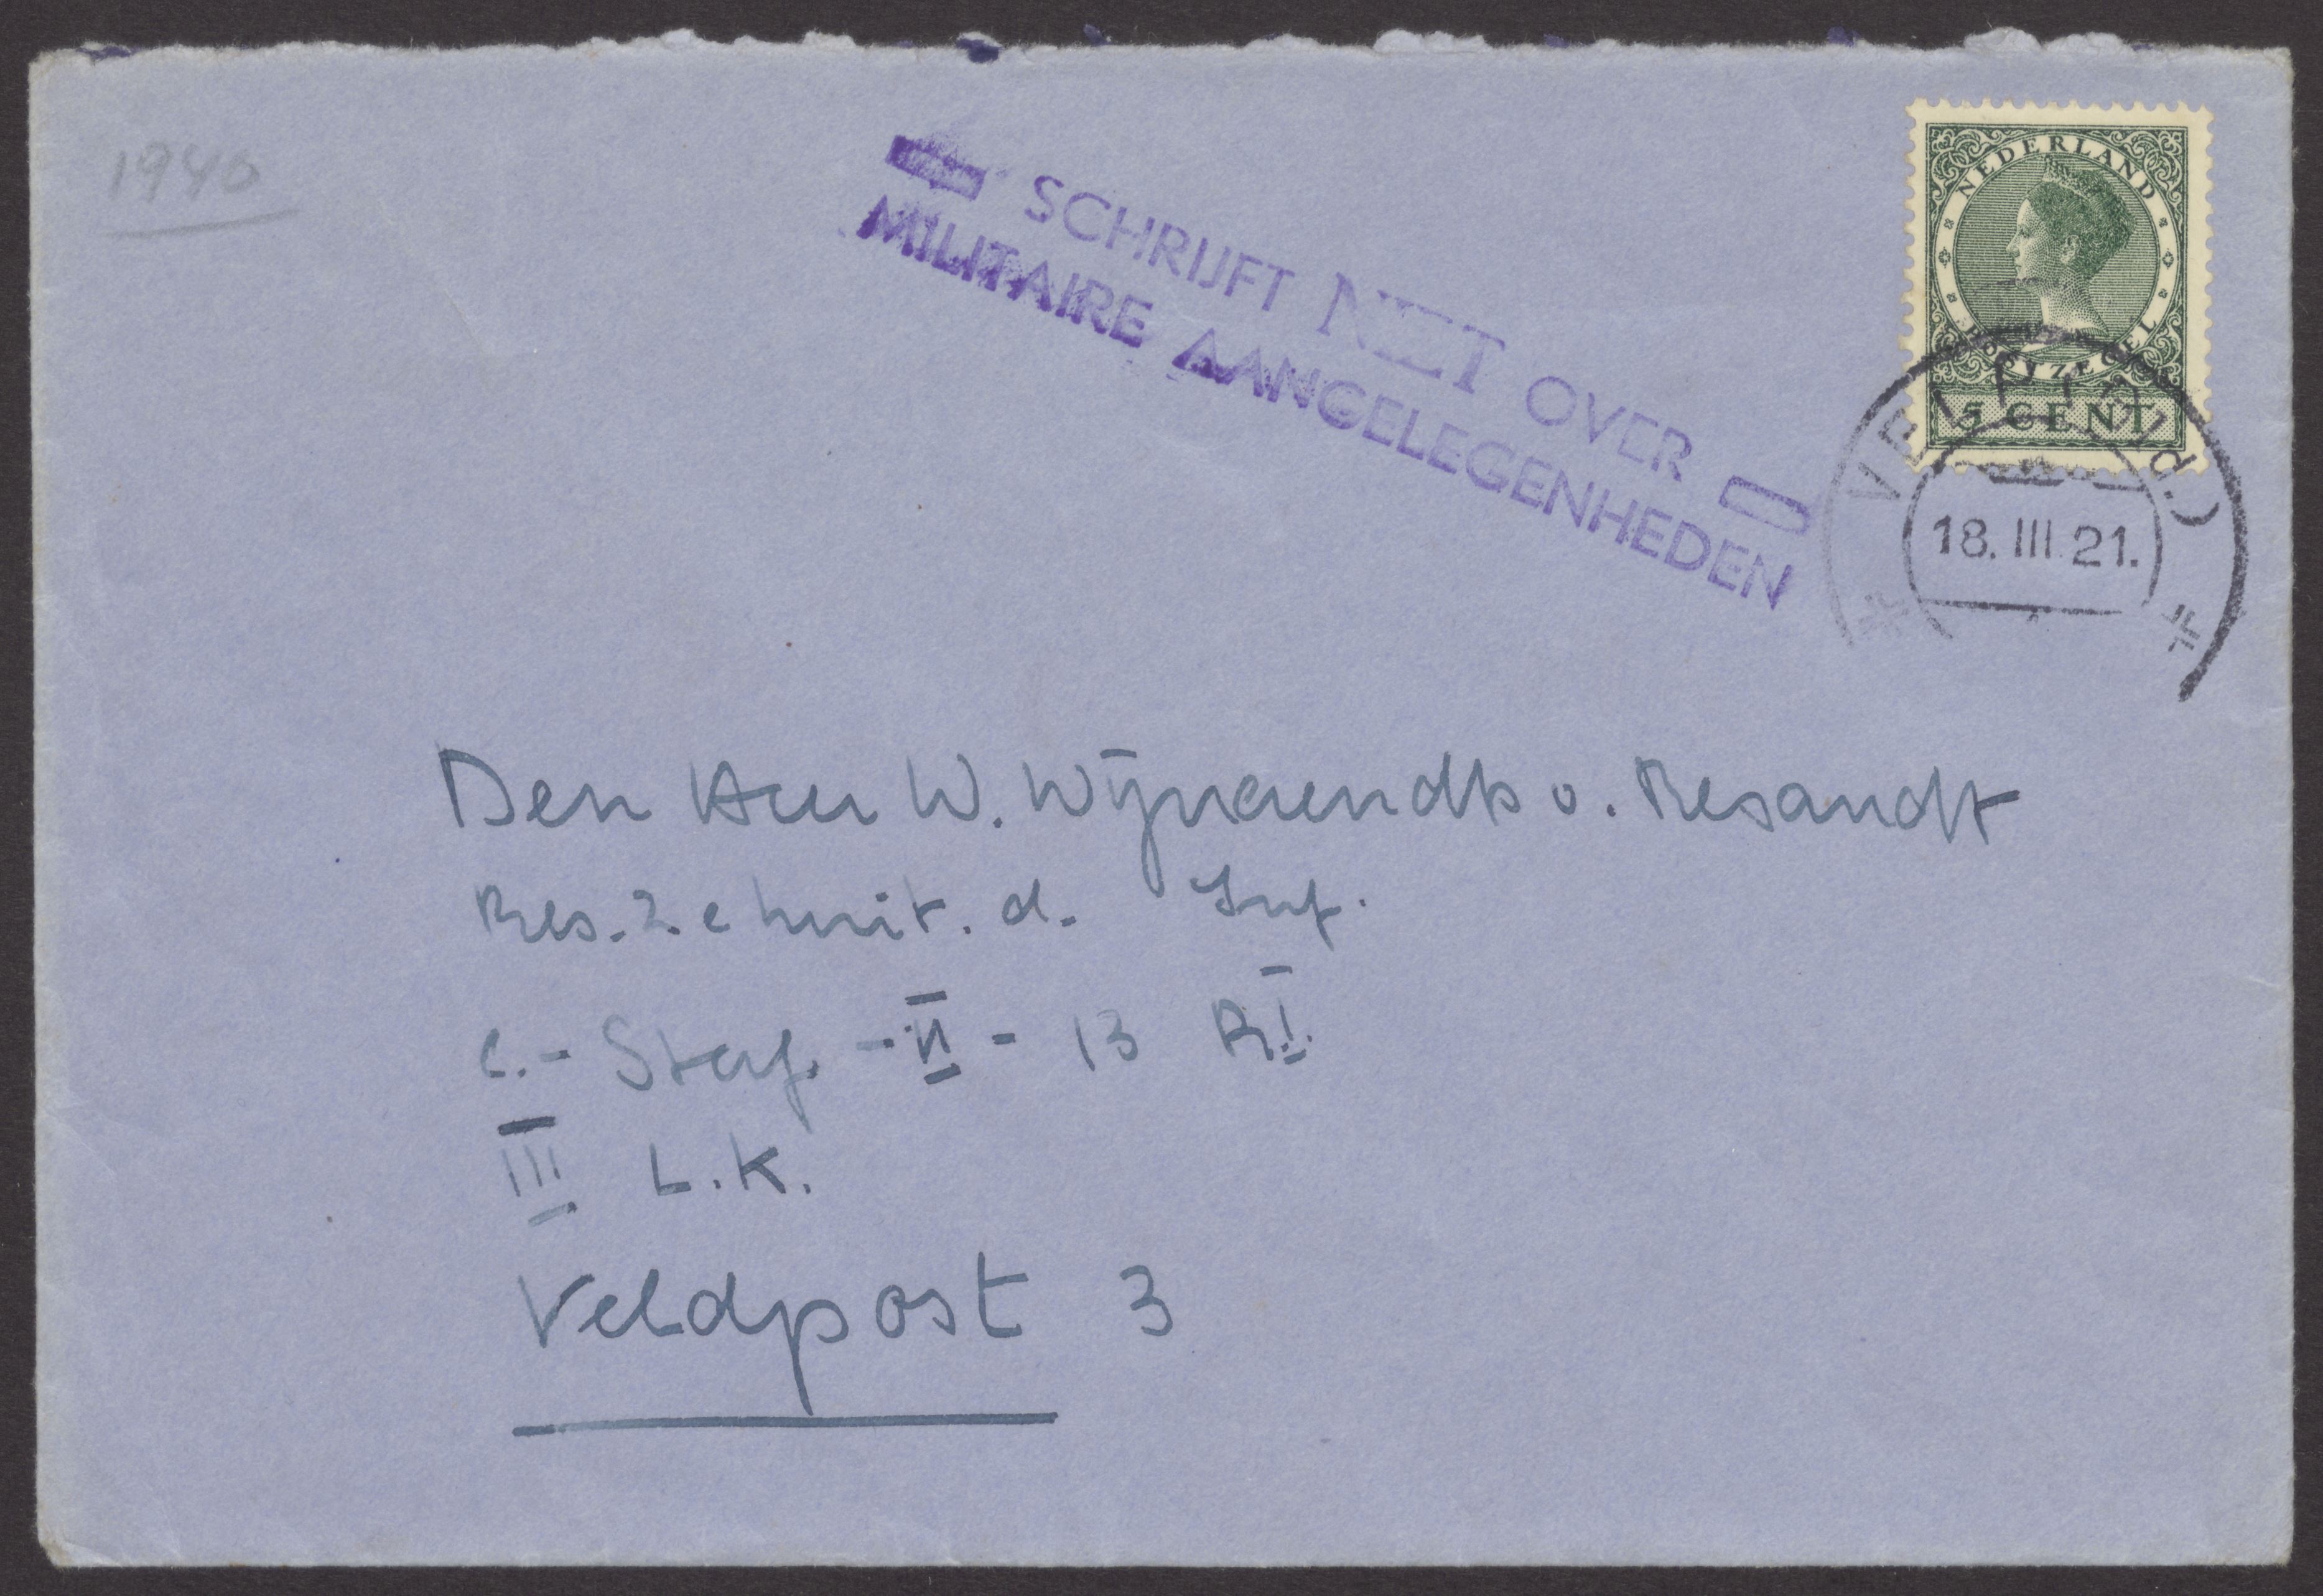 1940
SCHRIJFT NIET OVER
MILITAIRE AANGELEGENHEDEN
NEDERLAND
POSTZEGEL
5 CENT
18. III 21.
Den Heer W. Wijnaendts v. Resandt
Res. 2e Luit. d. Inf.
C.- Staf. - II - 13 R.I.
III L.K.
Veldpost 3